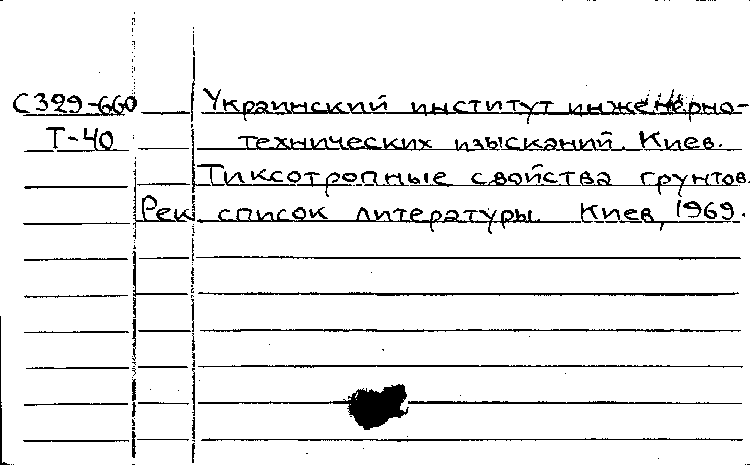 С329-660 Украинский институт инженерно-
Т-40 технических изысканий. Киев.
Тиксотропные свойства грунтов.
Рек. список литературы. Киев, 1969.